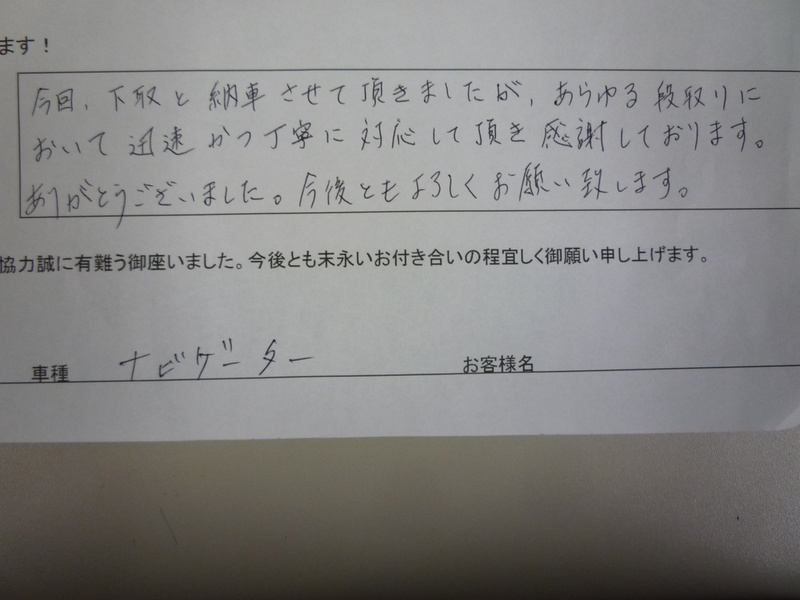 ます！
今回、下取と納車させて頂きましたが、あらゆる段取りに
おいて迅速かつ丁寧に対応して頂き感謝しております。
ありがとうございました。今後ともよろしくお願い致します。
協力誠に有難う御座いました。今後とも末永いお付き合いの程宜しく御願い申し上げます。
車種 ナビゲーター お客様名